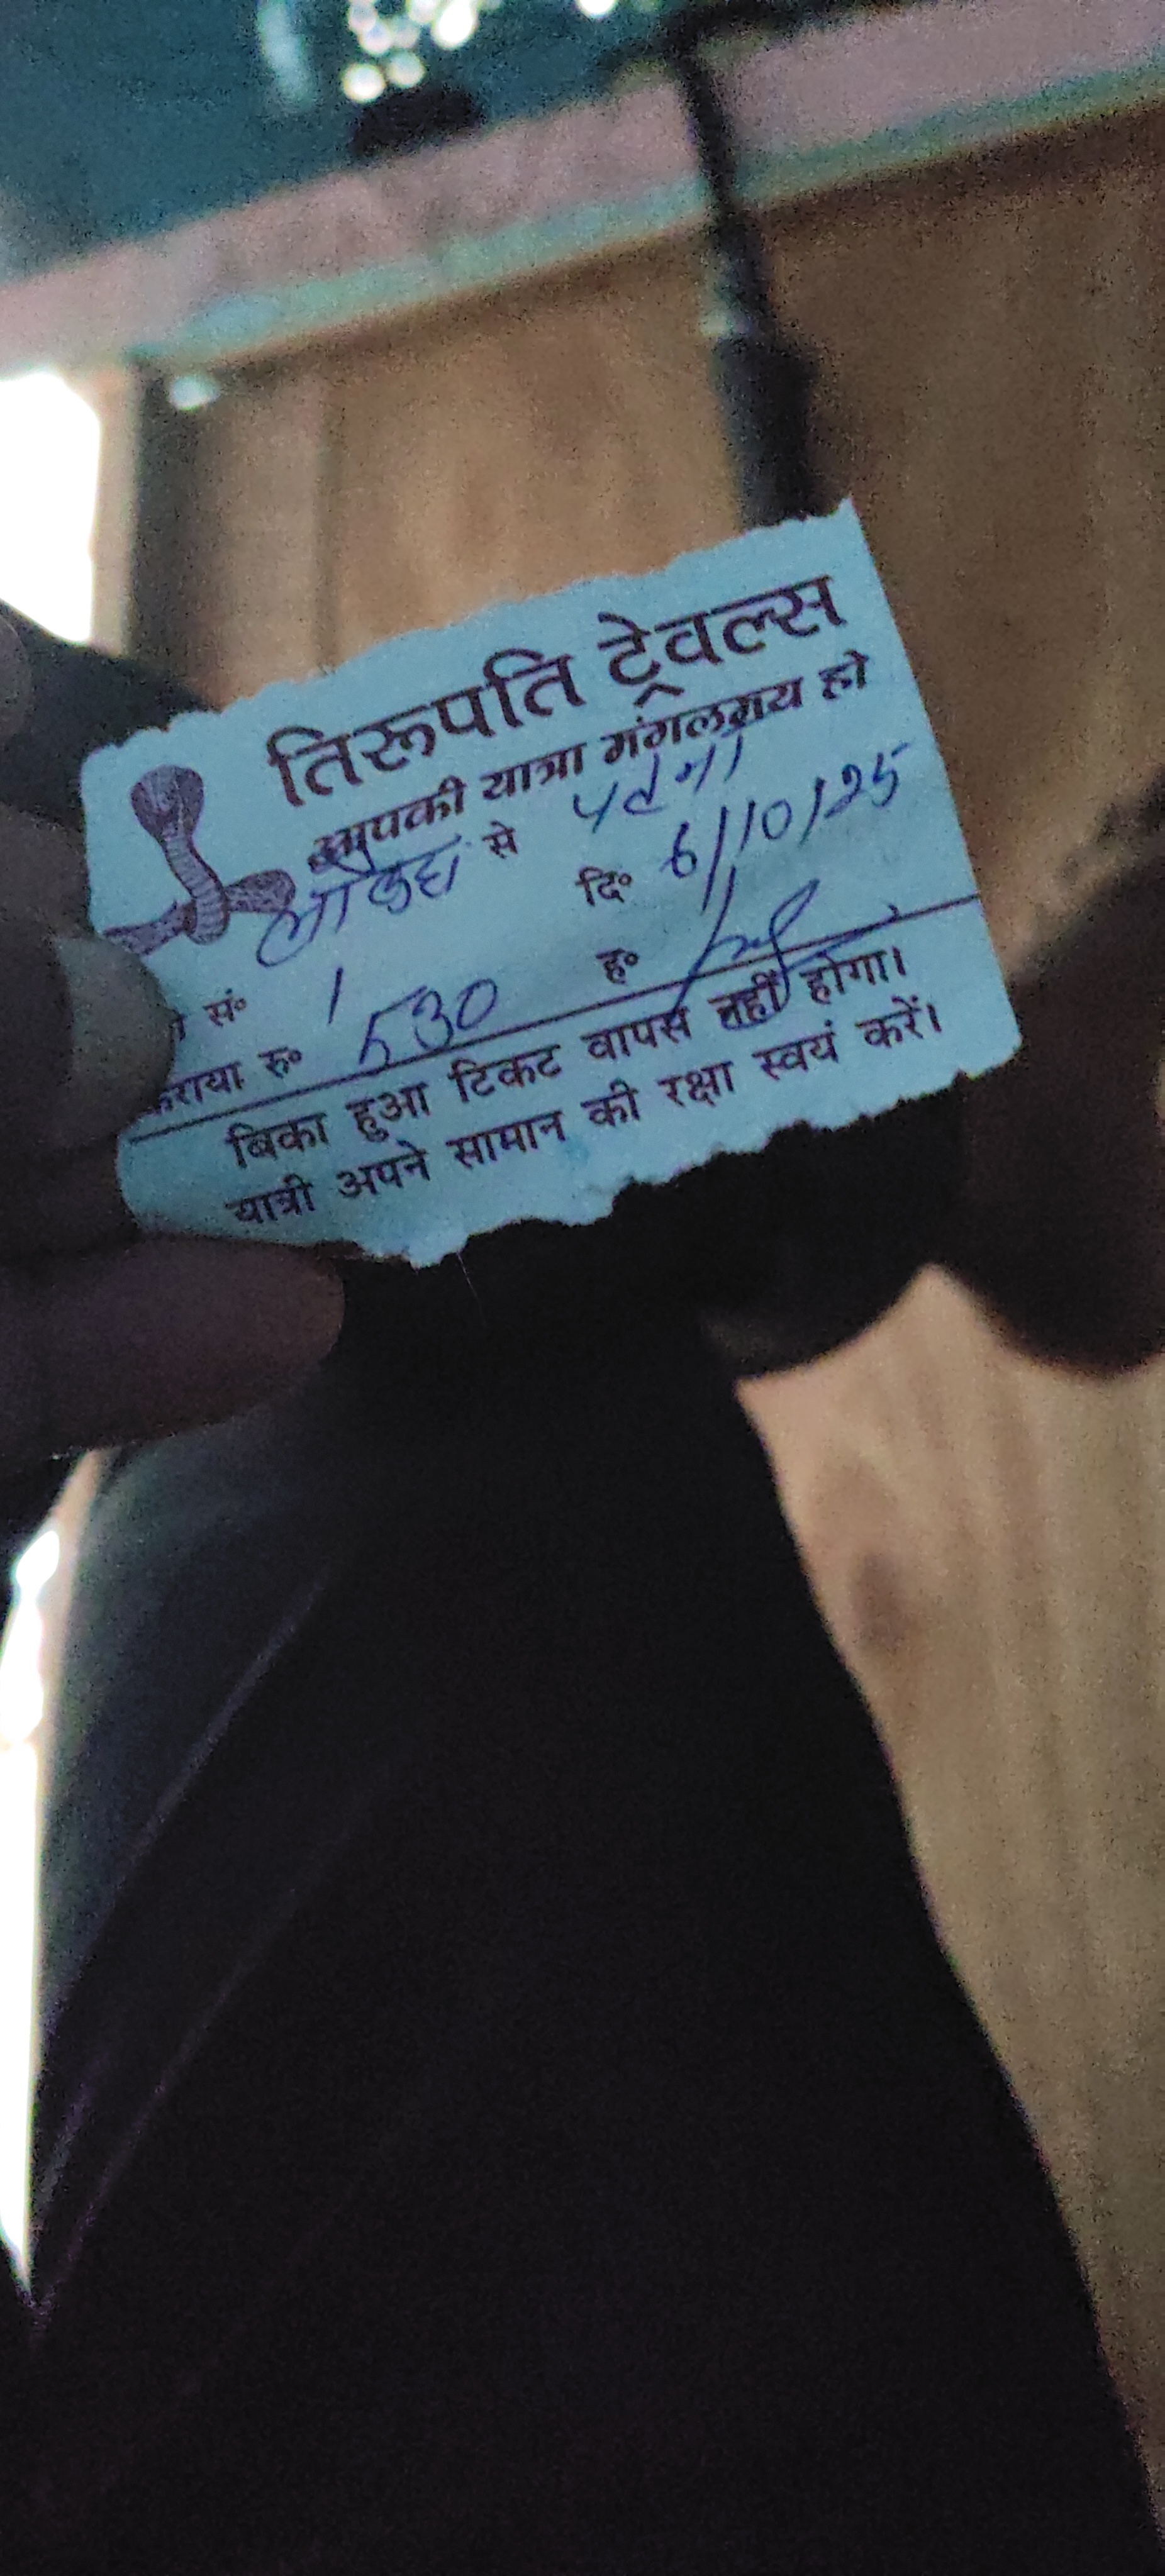 तिरूपति ट्रेवल्स
आपकी यात्रा मंगलमय हो
से पटना
दि० 6/10/25
सं० 1
किराया रु० 530 ह०
बिका हुआ टिकट वापस नहीं होगा।
यात्री अपने सामान की रक्षा स्वयं करें।